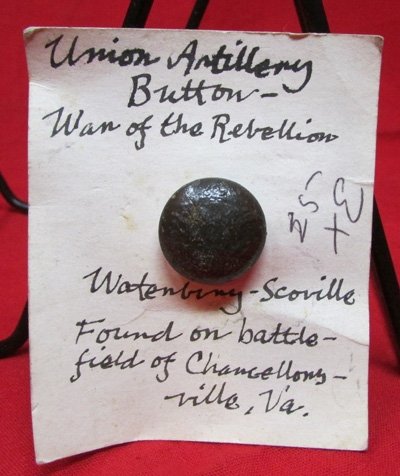 Union Artillery
Button -
War of the Rebellion
Waterbury - Scoville
Found on battle-
field of Chancellors-
ville, Va.